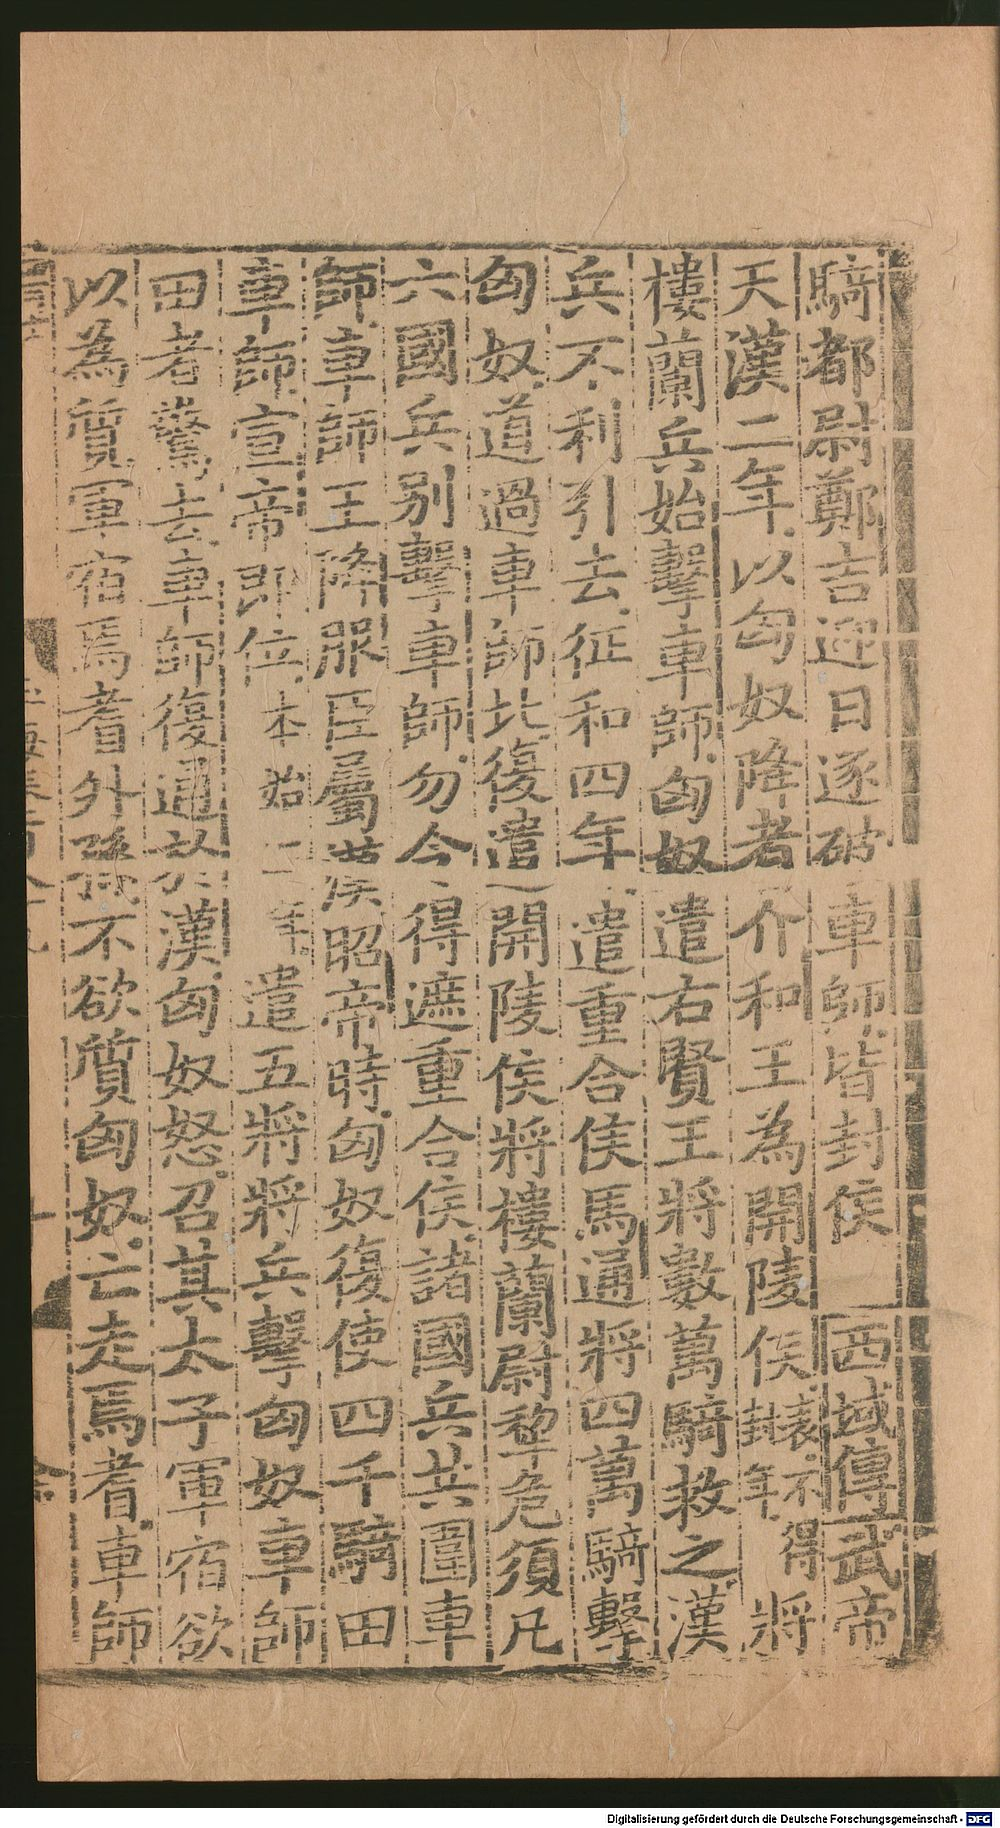 騎都尉鄭吉迎日逐破車師皆封侯 西域傳武帝
天漢二年以匈奴降者介和王為開陵侯表不得封年將
樓蘭兵始擊車師匈奴遣右賢王將數萬騎救之漢
兵不利引去征和四年遣重合侯馬通將四萬騎擊
匈奴道過車師北復遣開陵侯將樓蘭尉犂危須凡
六國兵別擊車師勿令得遮重合侯諸國兵共圍車
師車師王降服臣屬漢昭帝時匈奴復使四千騎田
車師宣帝即位本始二年遣五將將兵擊匈奴車師
田者驚去車師復通於漢匈奴怒召其太子軍宿欲
以為質軍宿焉耆外孫不欲質匈奴亡走焉耆車師
Digitalisierung gefördert durch die Deutsche Forschungsgemeinschaft - DFG